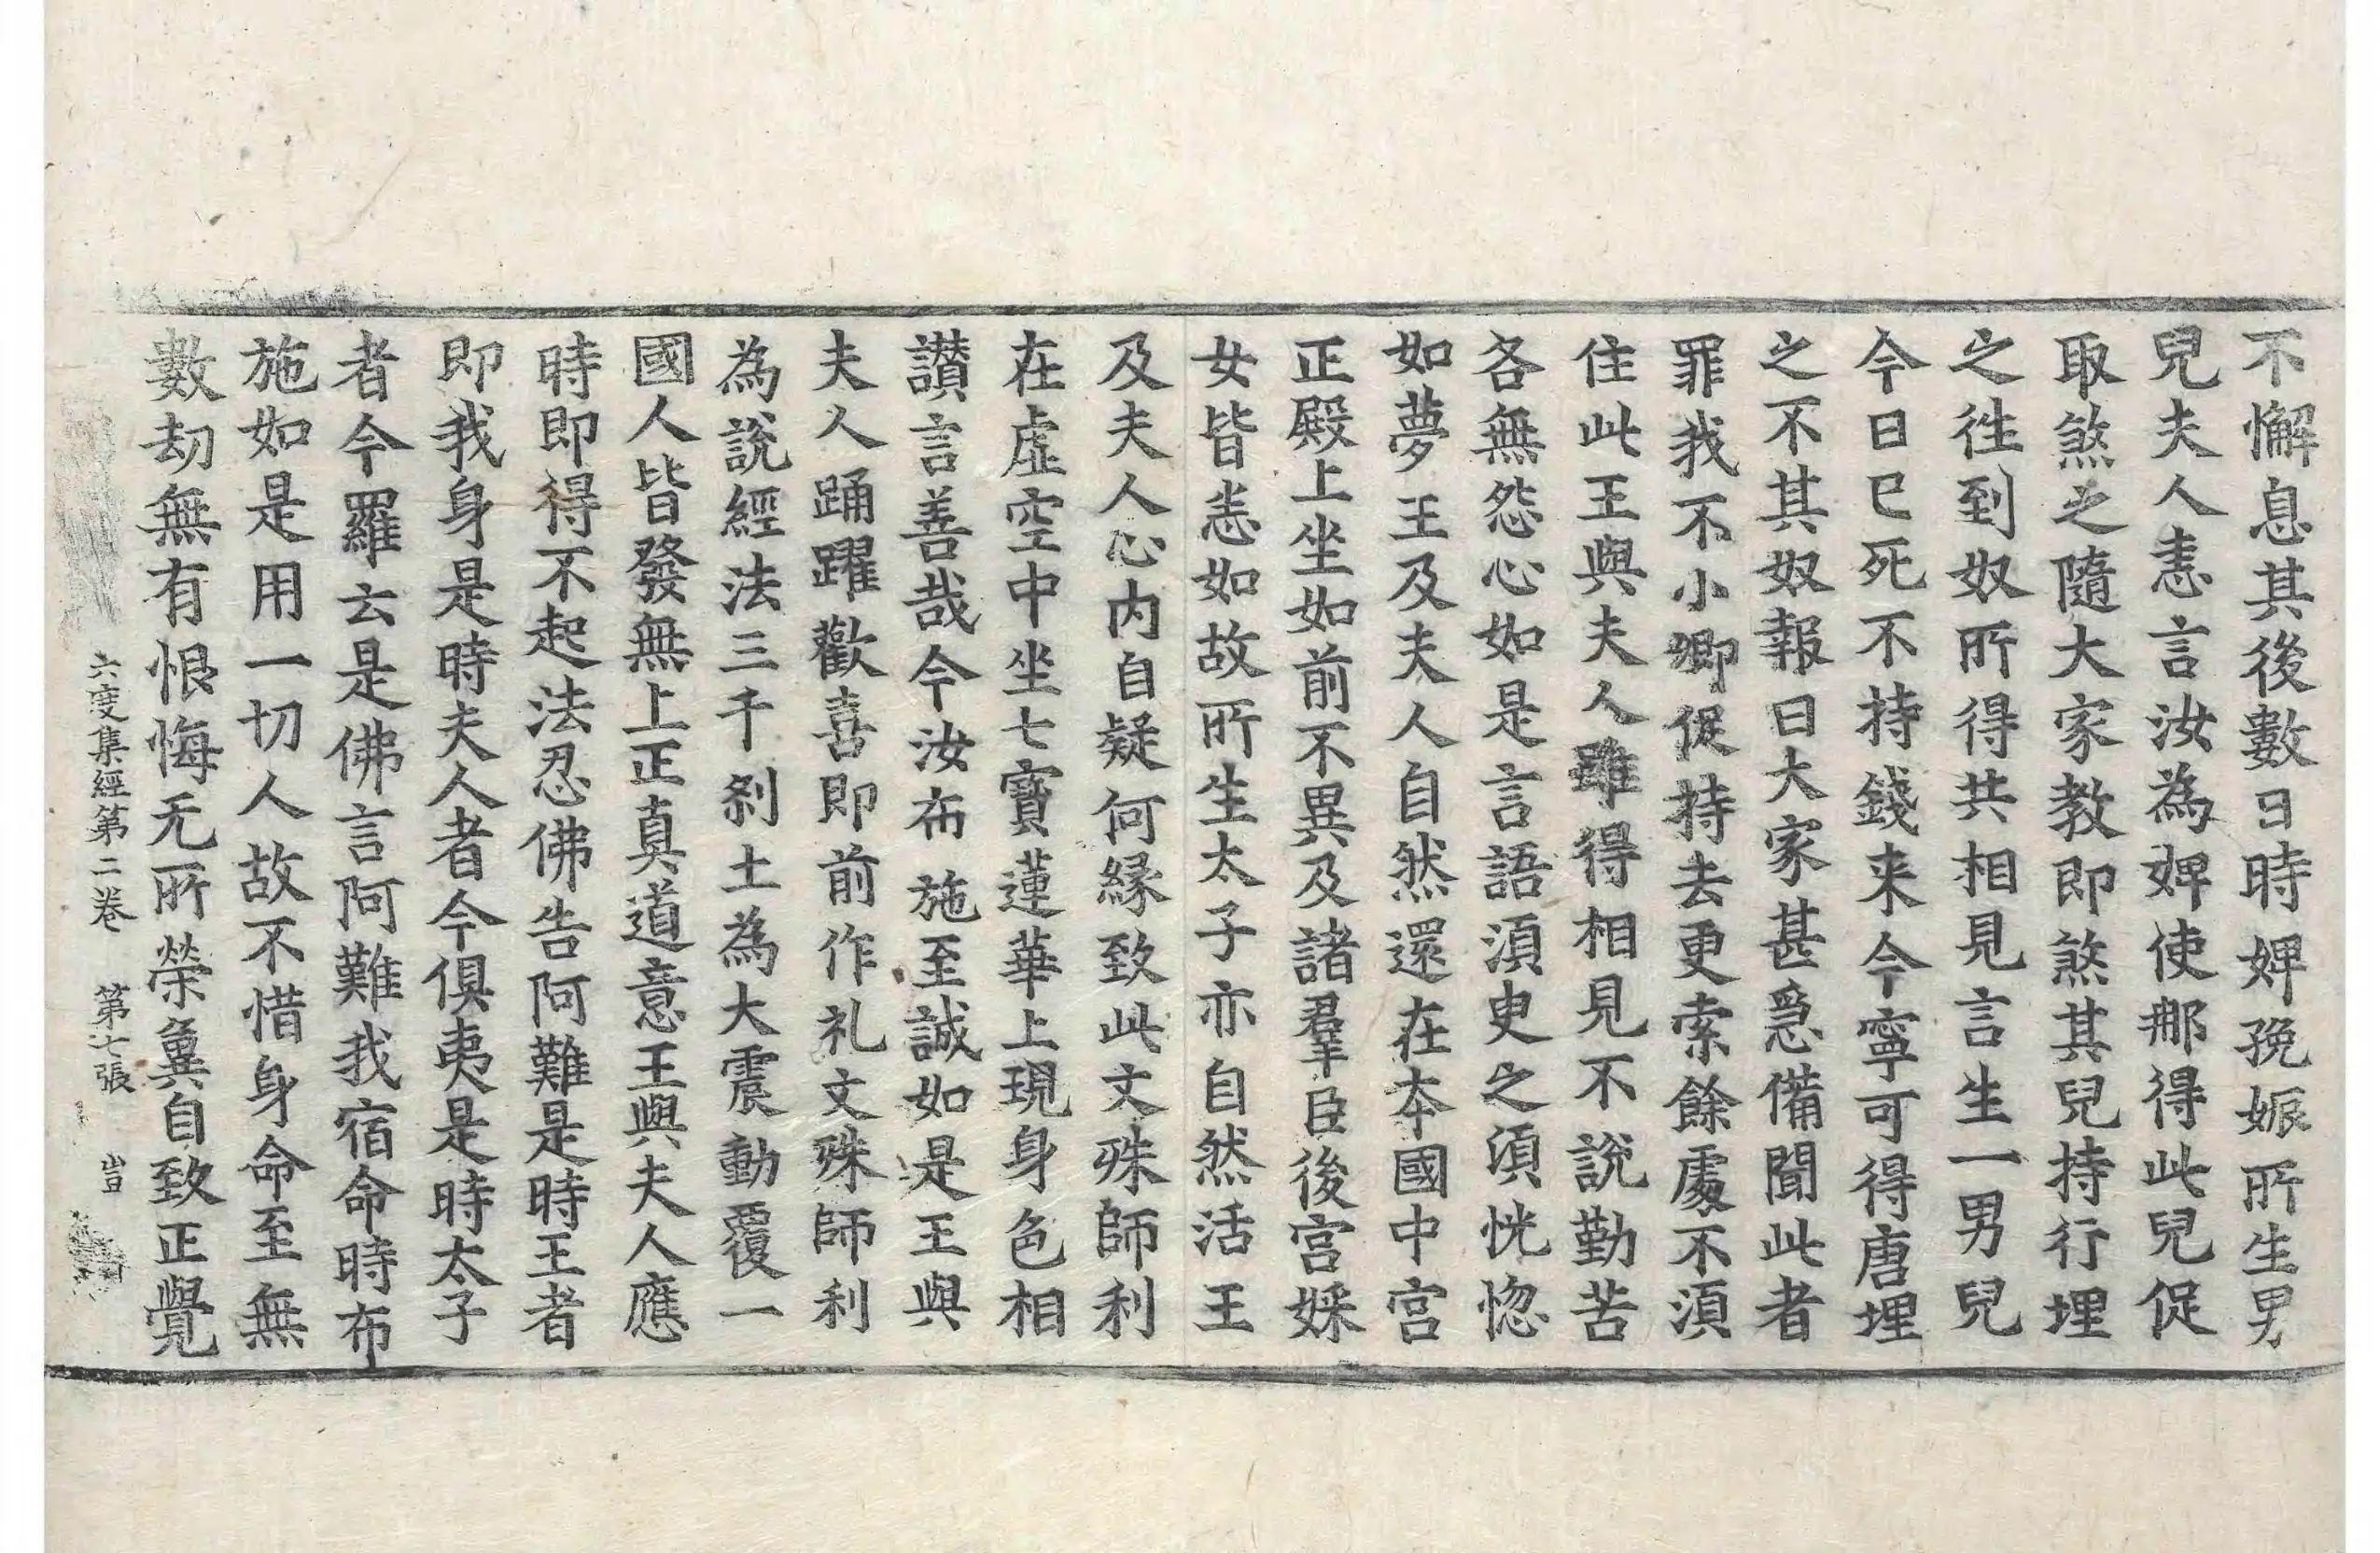 不懈息其後數日時婢娩娠所生男
兒夫人恚言汝為婢使那得此兒促
取煞之隨大家教即煞其兒持行埋
之徃到奴所得共相見言生一男兒
今日已死不持錢来今寧可得唐埋
之不其奴報曰大家甚急備聞此者
罪我不小卿促持去更索餘處不須
住此王與夫人雖得相見不說勤苦
各無怨心如是言語須臾之須恍惚
如夢王及夫人自然還在夲國中宮
正殿上坐如前不異及諸羣臣後宮婇
女皆恚如故所生太子亦自然活王
及夫人心內自疑何縁致此文殊師利
在虛空中坐七寶蓮華上現身色相
讃言善哉今汝布施至誠如是王與
夫人踊躍歡喜即前作礼文殊師利
為說經法三千剎土為大震動覆一
國人皆發無上正真道意王與夫人應
時即得不起法忍佛告阿難是時王者
即我身是時夫人者今俱夷是時太子
者今羅云是佛言阿難我宿命時布
施如是用一切人故不惜身命至無
數劫無有恨悔无所榮冀自致正覺
六度集經第二卷 第七張 㞷